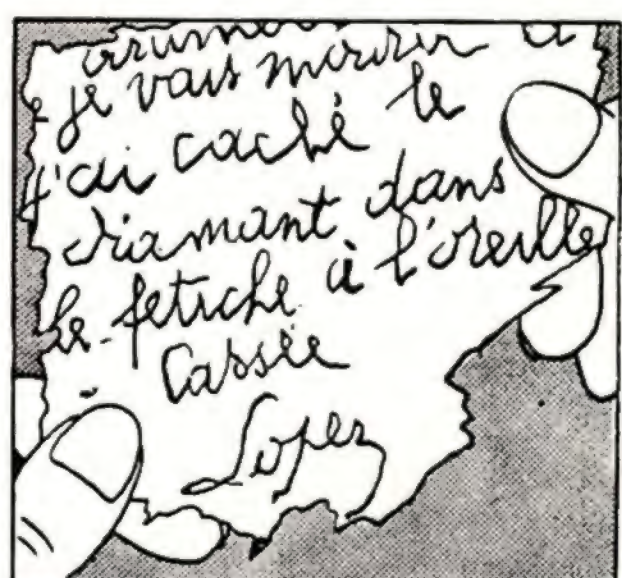 je vais mourir
j'ai caché le
diamant dans
le fétiche à l'oreille
Cassée
Lopez